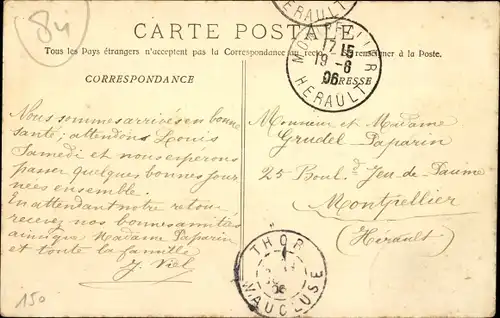 84
CARTE POSTALE
Tous les Pays étrangers n'acceptent pas la Correspondance au recto. renseigner à la Poste.
CORRESPONDANCE
ADRESSE
HERAULT
MONTPELLIER
17 15
19 -6
06
HERAULT
Nous sommes arrivés en bonne
santé; attendons Louis
Samedi et nous esperons
passer quelques bonnes jour
nées ensemble.
En attendant notre retour
recevez nos bonnes amitiées
ainsi que Madame Paparin
et toute la famille
J. Viel
Monsieur et Madame
Grudel Paparin
25 Boul. d Jeu de Paume
Montpellier
(Hérault)
THOR
06
VAUCLUSE
150